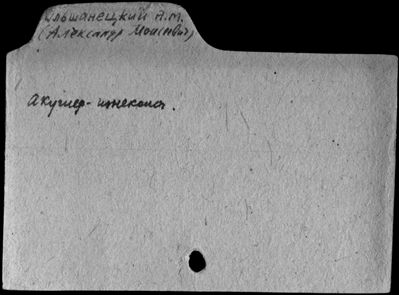 Ольшанецкий А.М.
(Александр Моисеевич)
Акушер-гинеколог.